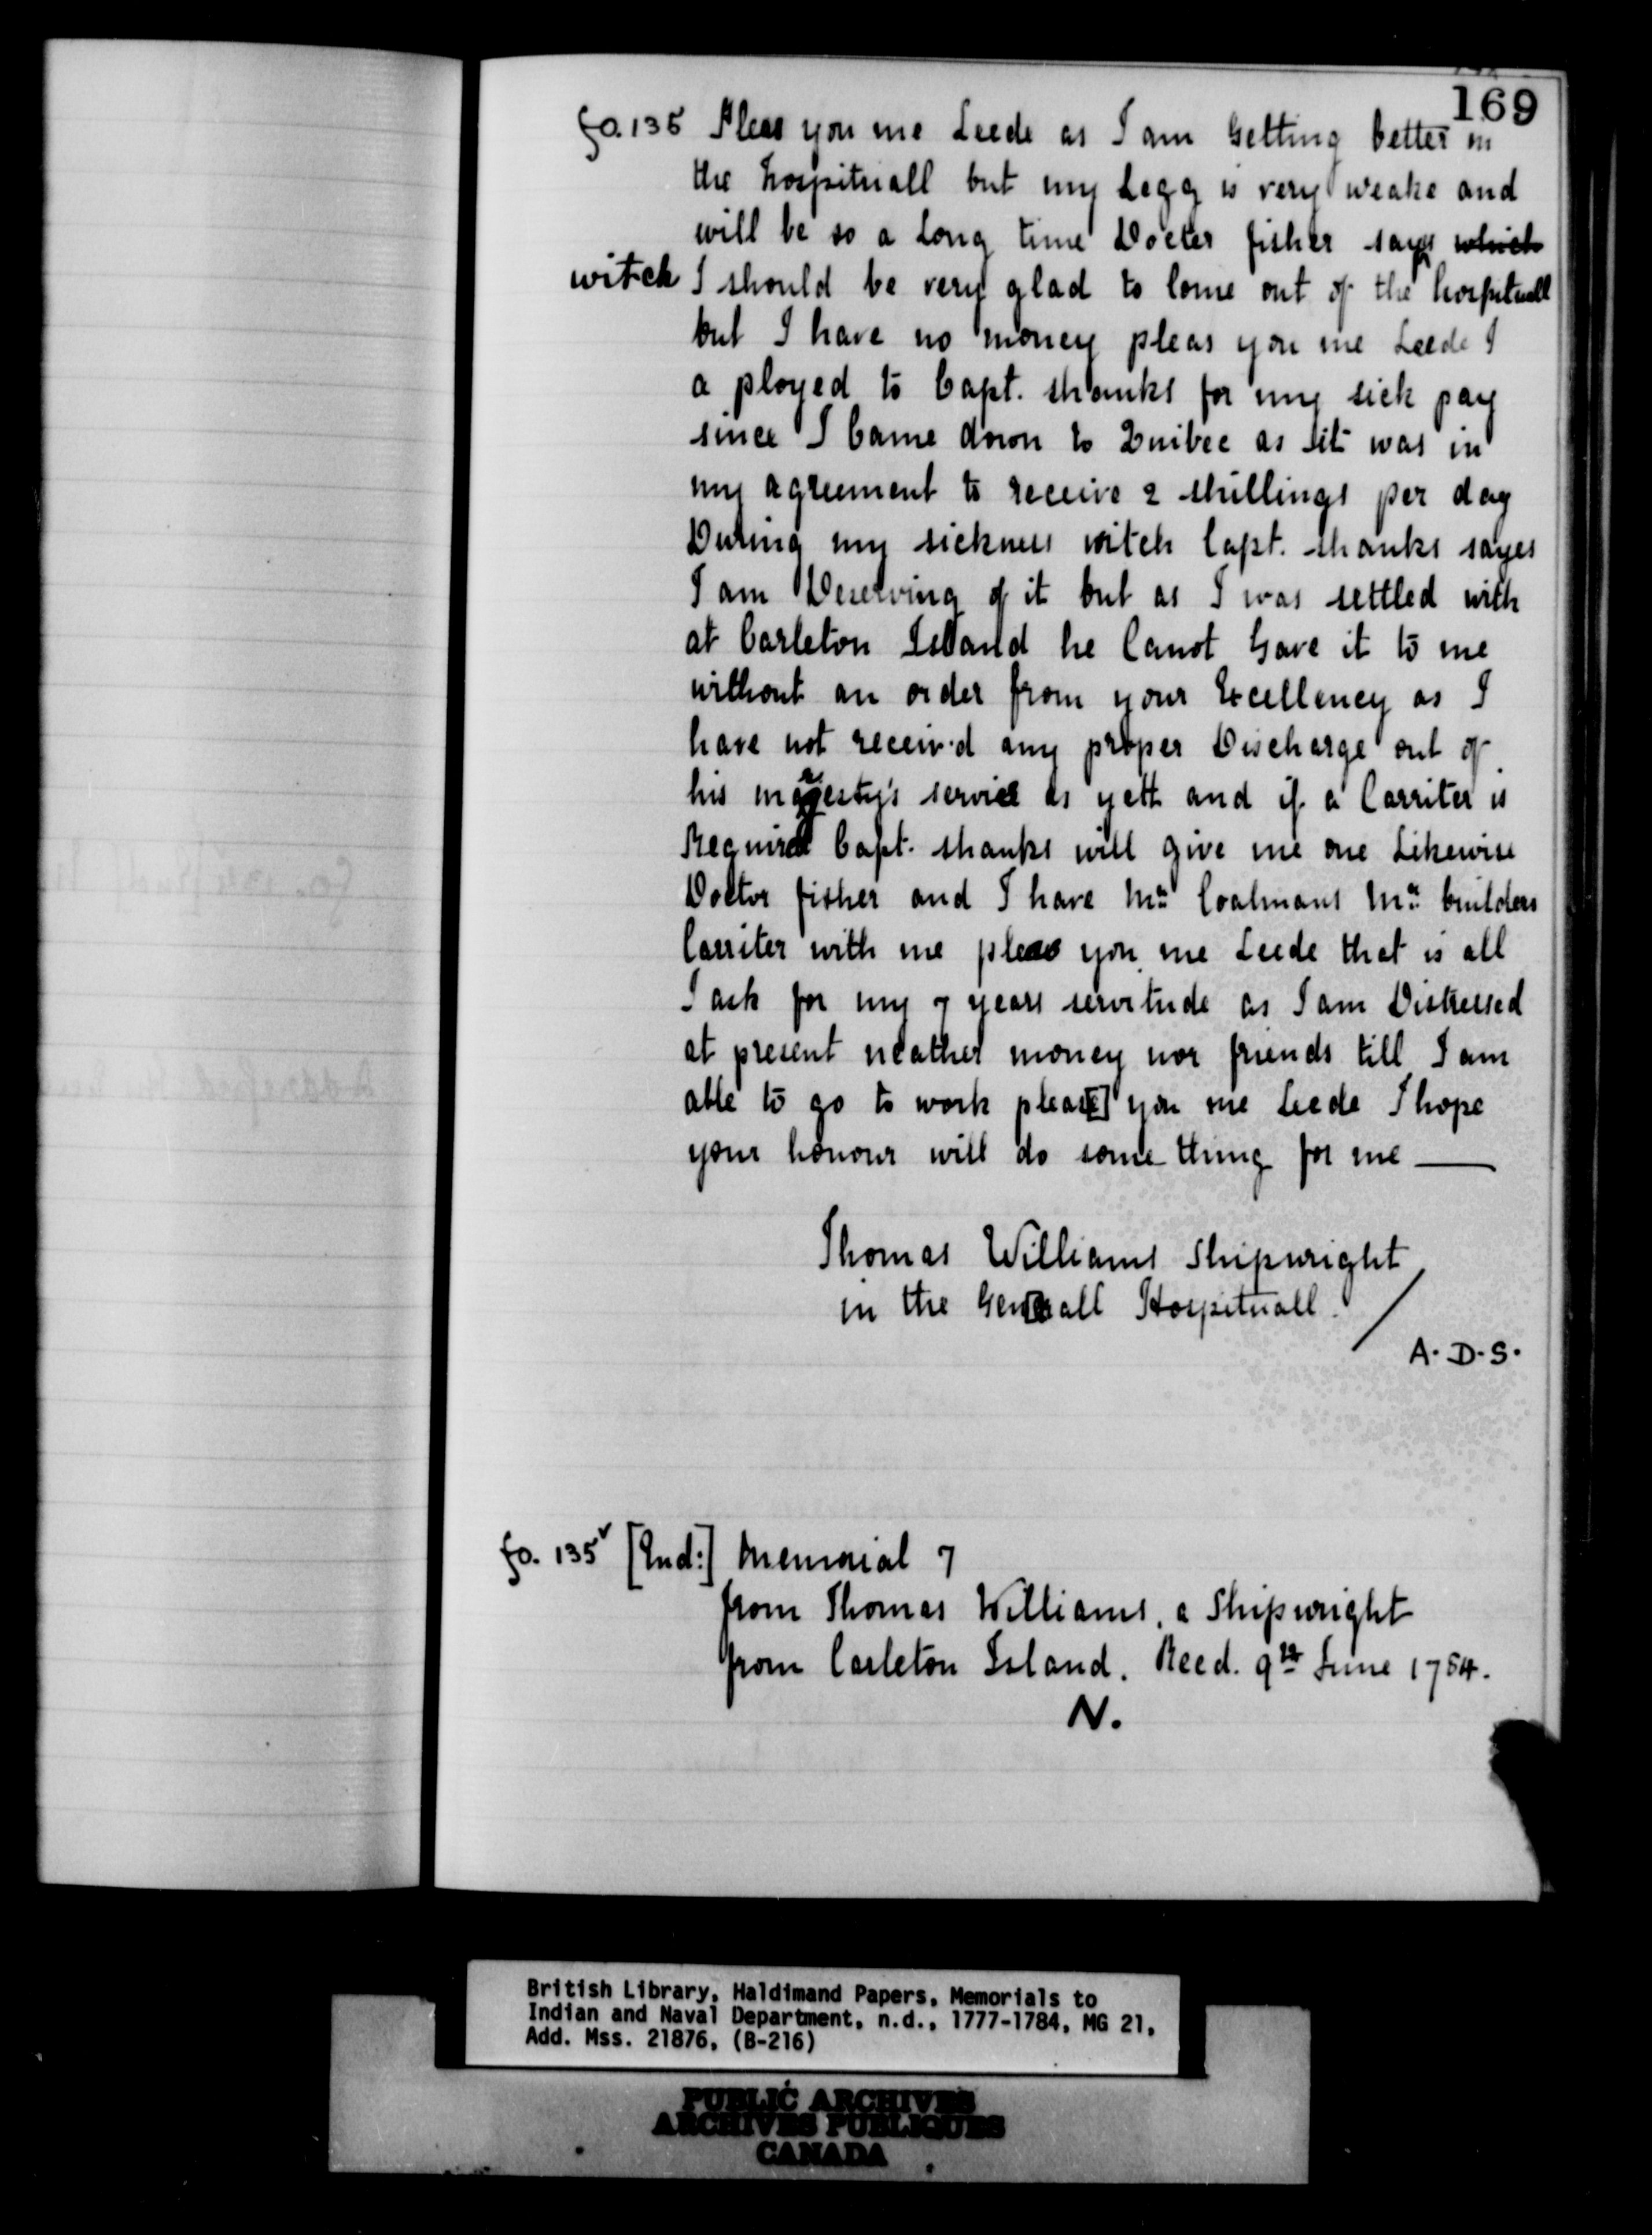 169
fo. 135 Pleas you me Leede as I am Getting better in
the hospituall but my Legg is very weake and
will be so a Long time Docter fisher says which
witch I should be very glad to Come out of the hospituall
but I have no money pleas you me Leede I
a ployed to Capt. shanks for my sick pay
since I Came down to Quibec as it was in
my agreement to receive 2 shillings per day
During my sickness witch Capt. shanks sayes
I am Deserving of it but as I was settled with
at Carleton Island he Canot Gave it to me
without an order from your Excellency as I
have not receiv'd any proper Discharge out of
his majesty's service as yett and if a Carriter is
Required Capt. shanks will give me one Likewise
Doctor fisher and I have Mr. Coalmans Mr. builders
Carriter with me pleas you me Leede that is all
I ask for my 7 years servitude as I am Distressed
at present neather money nor friends till I am
able to go to work pleas[e] you me Leede I hope
your honour will do some thing for me —
Thomas Williams Shipwright
in the Generall Hospituall.
A. D. S.
fo. 135v [End:] Memorial 7
from Thomas Williams, a Shipwright
from Carleton Island. Recd. 9th June 1784.
N.
British Library, Haldimand Papers, Memorials to
Indian and Naval Department, n.d., 1777-1784, MG 21,
Add. Mss. 21876, (B-216)
PUBLIC ARCHIVES
ARCHIVES PUBLIQUES
CANADA